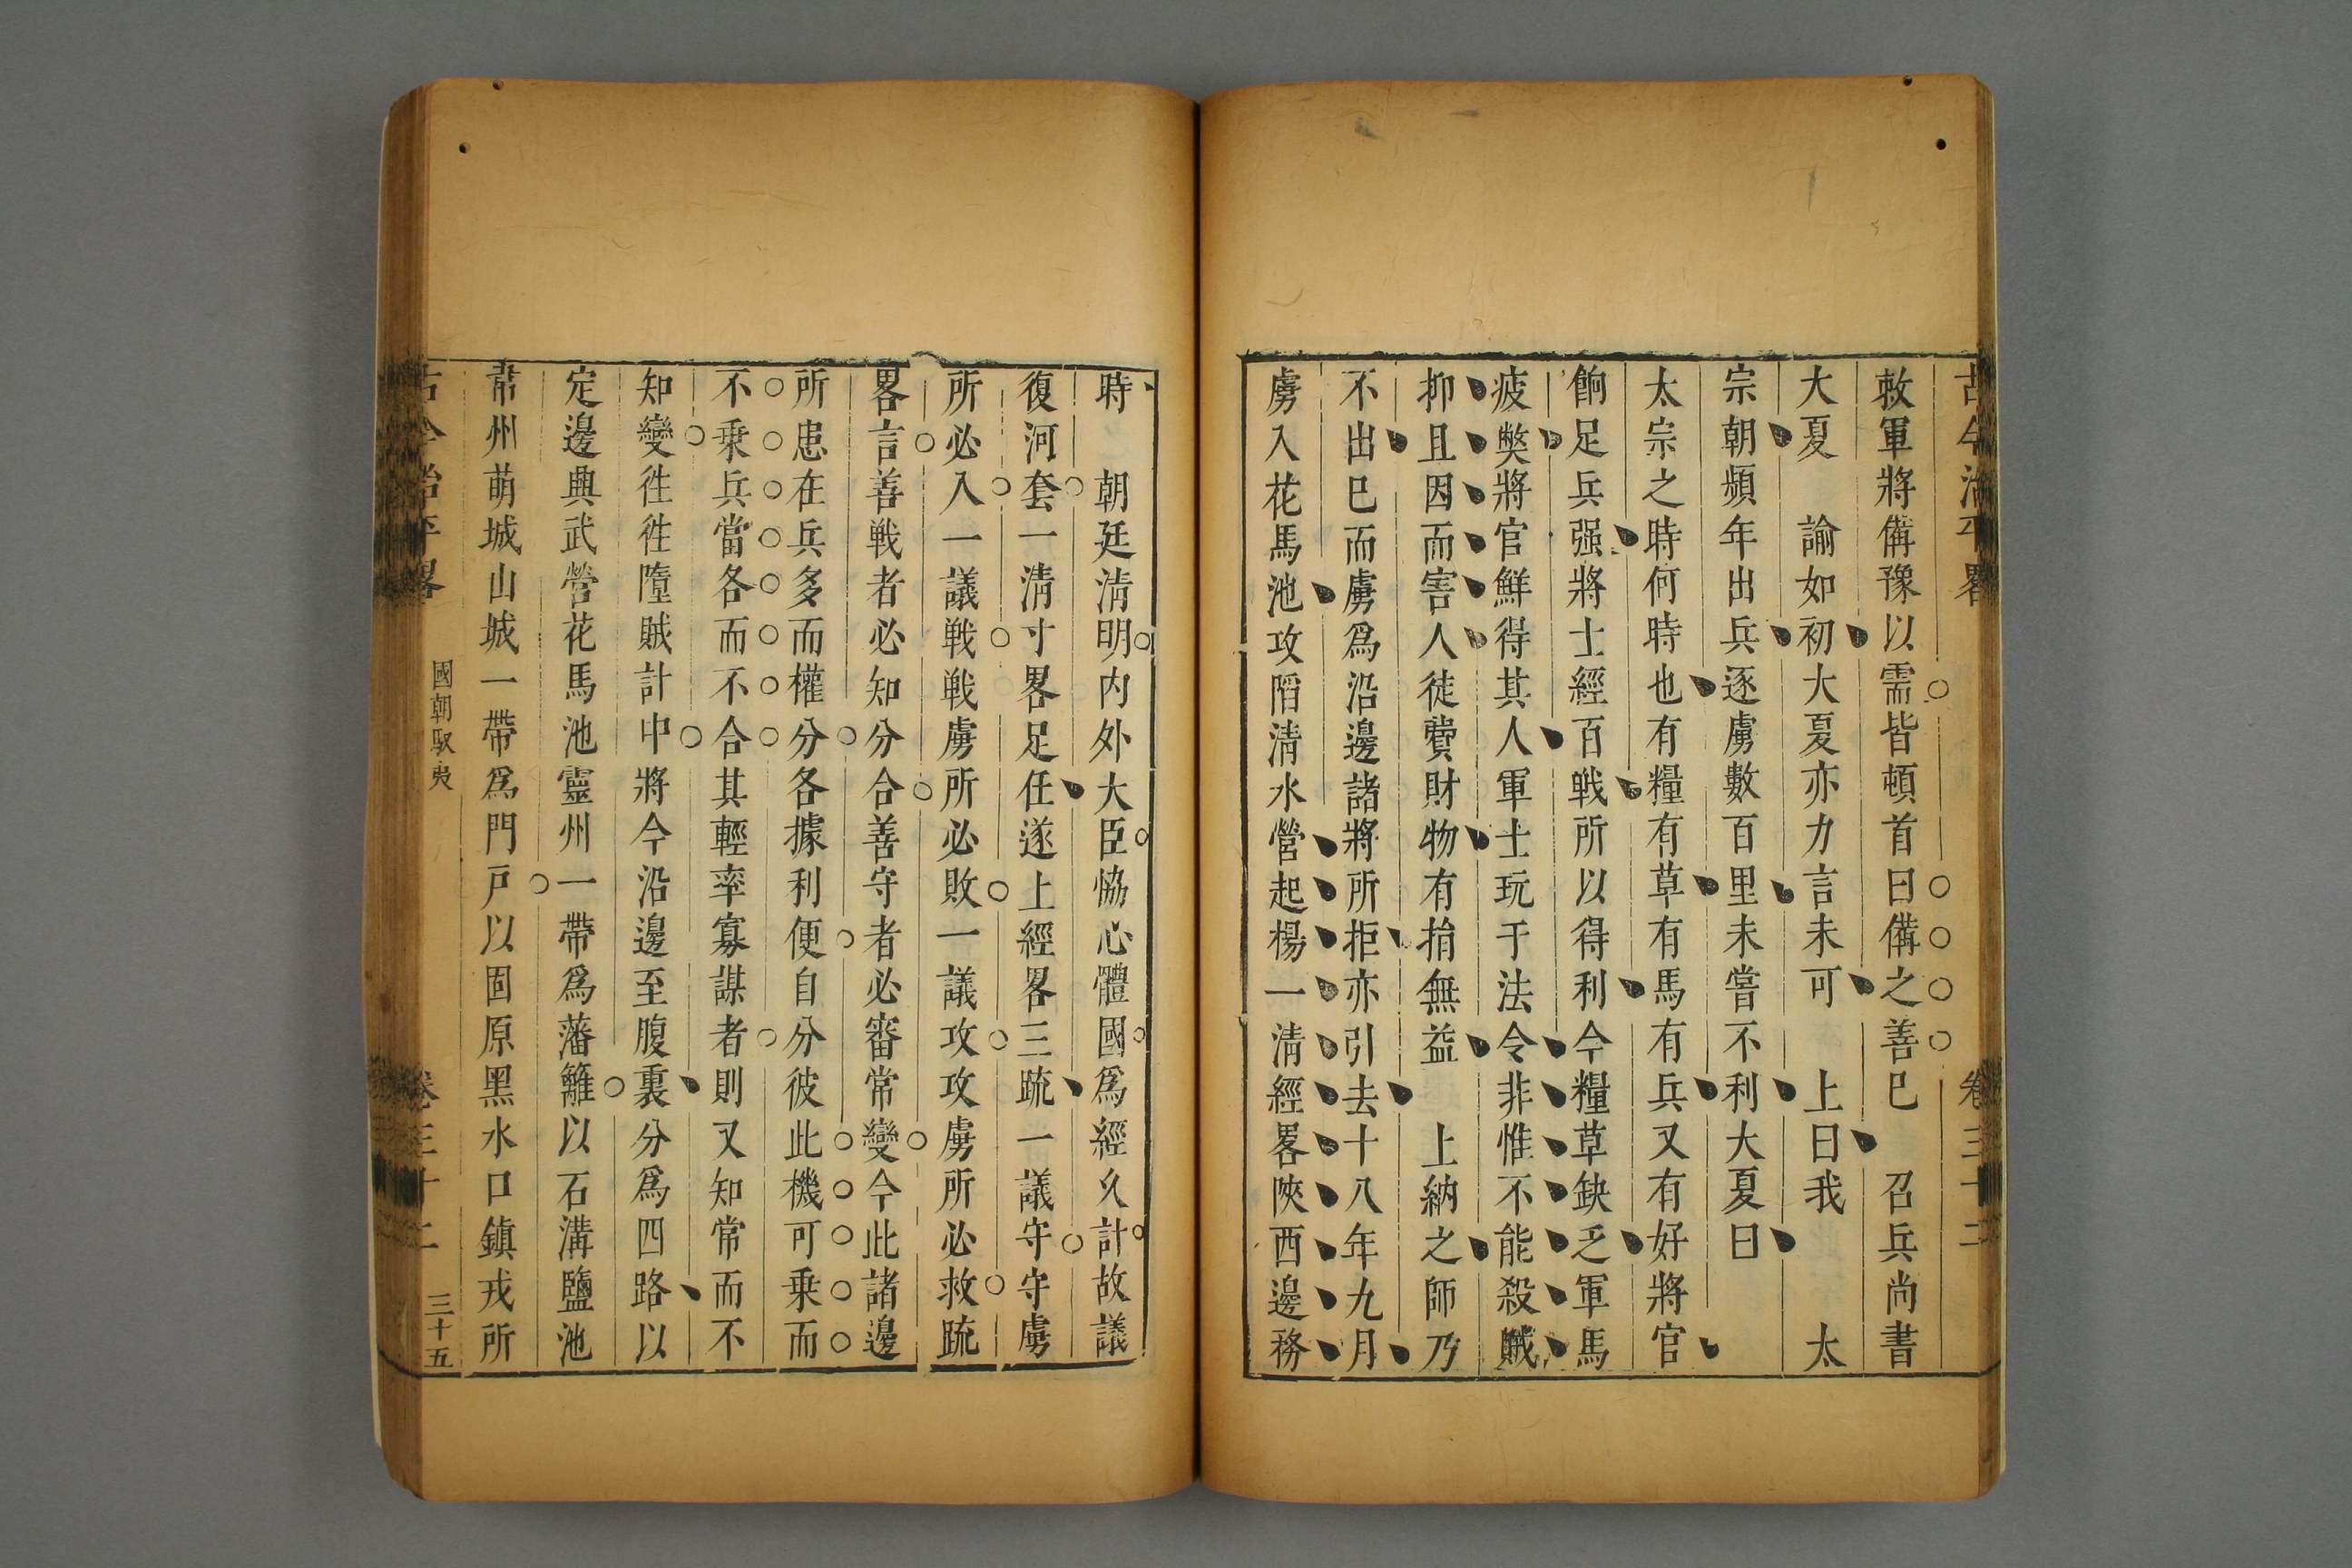 古今治平畧 卷三十二
敕軍將備豫以需皆頓首曰備之善巳 召兵尚書
大夏 諭如初大夏亦力言未可 上曰我 太
宗朝頻年出兵逐虜數百里未嘗不利大夏曰
太宗之時何時也有糧有草有馬有兵又有好將官
餉足兵强將士經百戰所以得利今糧草缺乏軍馬
疲獘將官鮮得其人軍士玩于法令非惟不能殺賊
抑且因而害人徒費財物有損無益 上納之師乃
不出巳而虜爲沿邊諸將所拒亦引去十八年九月
虜入花馬池攻䧟清水營起楊一清經畧陜西邊務
時 朝廷清明内外大臣恊心體國爲經久計故議
復河套一清寸畧足任遂上經畧三疏一議守守虜
所必入一議戰戰虜所必敗一議攻攻虜所必救疏
畧言善戰者必知分合善守者必審常變今此諸邊
所患在兵多而權分各據利便自分彼此機可乗而
不乗兵當各而不合其輕率寡謀者則又知常而不
知變徃徃隳賊計中將今沿邊至腹裏分爲四路以
定邊興武營花馬池靈州一帶爲藩籬以石溝鹽池
韋州萌城山城一帶爲門戸以固原黑水口鎮戎所
古今治平畧 國朝馭夷 卷三十二 三十五